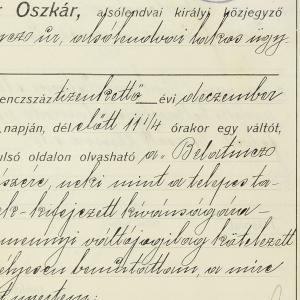 r Oszkár, alsólendvai királyi közjegyző
úr, alsólendvai lakos ügy-
enczszáz tizenkettő évi deczember
napján, dél előtt 11 1/4 órakor egy váltót,
ulsó oldalon olvasható a „Belatincz
részére, neki mint a telepesta-
k-kifejezett kívánságára-
mennyi váltójogilag kötelezett
élyesen bemutattam, a mire